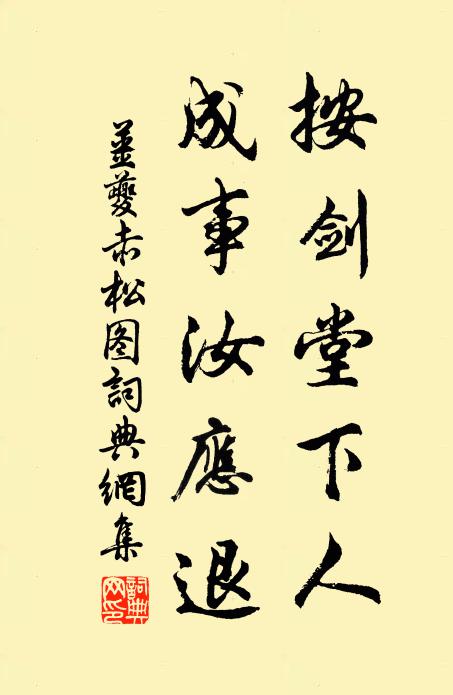 按剑堂下人
成事汝應退
姜夔赤松图詞典網集
詞典网印